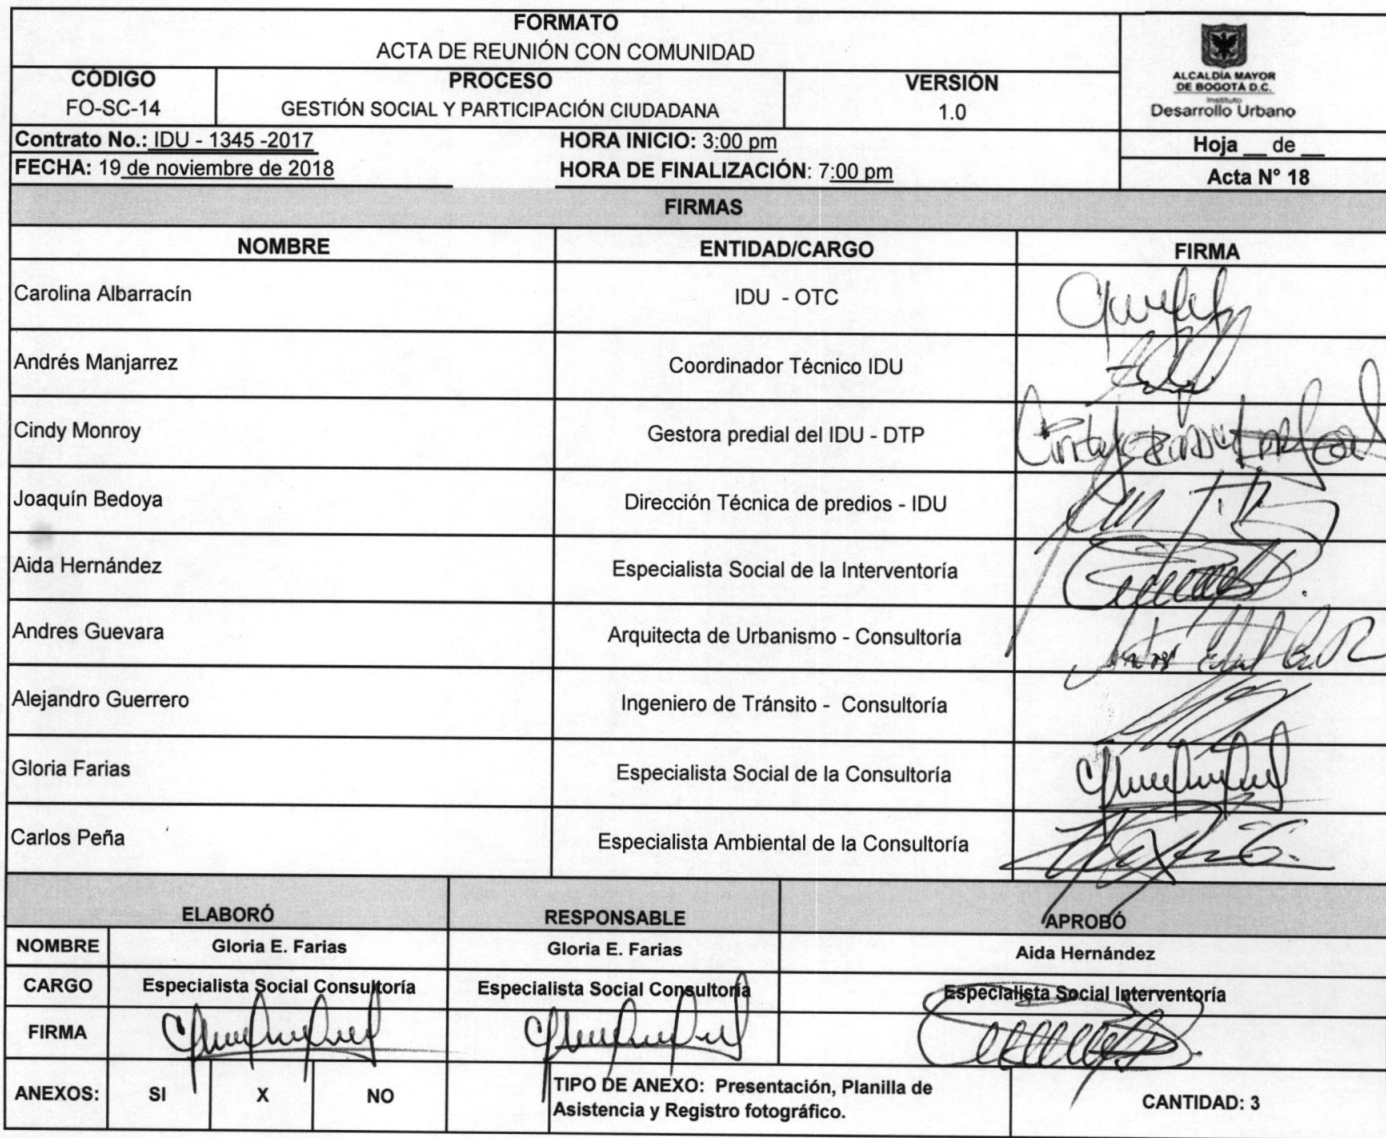 FORMATO
ACTA DE REUNIÓN CON COMUNIDAD
CÓDIGO
FO-SC-14
PROCESO
GESTIÓN SOCIAL Y PARTICIPACIÓN CIUDADANA
VERSIÓN
1.0
ALCALDÍA MAYOR
DE BOGOTÁ D.C.
Instituto
Desarrollo Urbano
Contrato No.: IDU - 1345 -2017
HORA INICIO: 3:00 pm
Hoja __ de __
FECHA: 19 de noviembre de 2018
HORA DE FINALIZACIÓN: 7:00 pm
Acta N° 18
FIRMAS
NOMBRE
ENTIDAD/CARGO
FIRMA
Carolina Albarracín
IDU - OTC
Andrés Manjarrez
Coordinador Técnico IDU
Cindy Monroy
Gestora predial del IDU - DTP
Joaquín Bedoya
Dirección Técnica de predios - IDU
Aida Hernández
Especialista Social de la Interventoría
Andres Guevara
Arquitecta de Urbanismo - Consultoría
Alejandro Guerrero
Ingeniero de Tránsito - Consultoría
Gloria Farias
Especialista Social de la Consultoría
Carlos Peña
Especialista Ambiental de la Consultoría
ELABORÓ
RESPONSABLE
APROBÓ
NOMBRE
Gloria E. Farias
Gloria E. Farias
Aida Hernández
CARGO
Especialista Social Consultoría
Especialista Social Consultoría
Especialista Social Interventoría
FIRMA
ANEXOS:
SI
X
NO
TIPO DE ANEXO: Presentación, Planilla de
Asistencia y Registro fotográfico.
CANTIDAD: 3